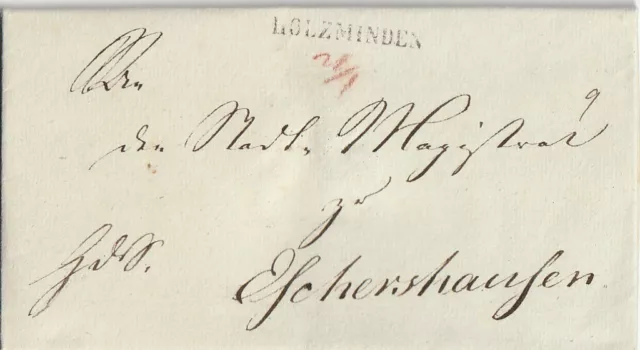 HOLZMINDEN
An
den Stadt-Magistrat
zu
HdS.
Eschershausen